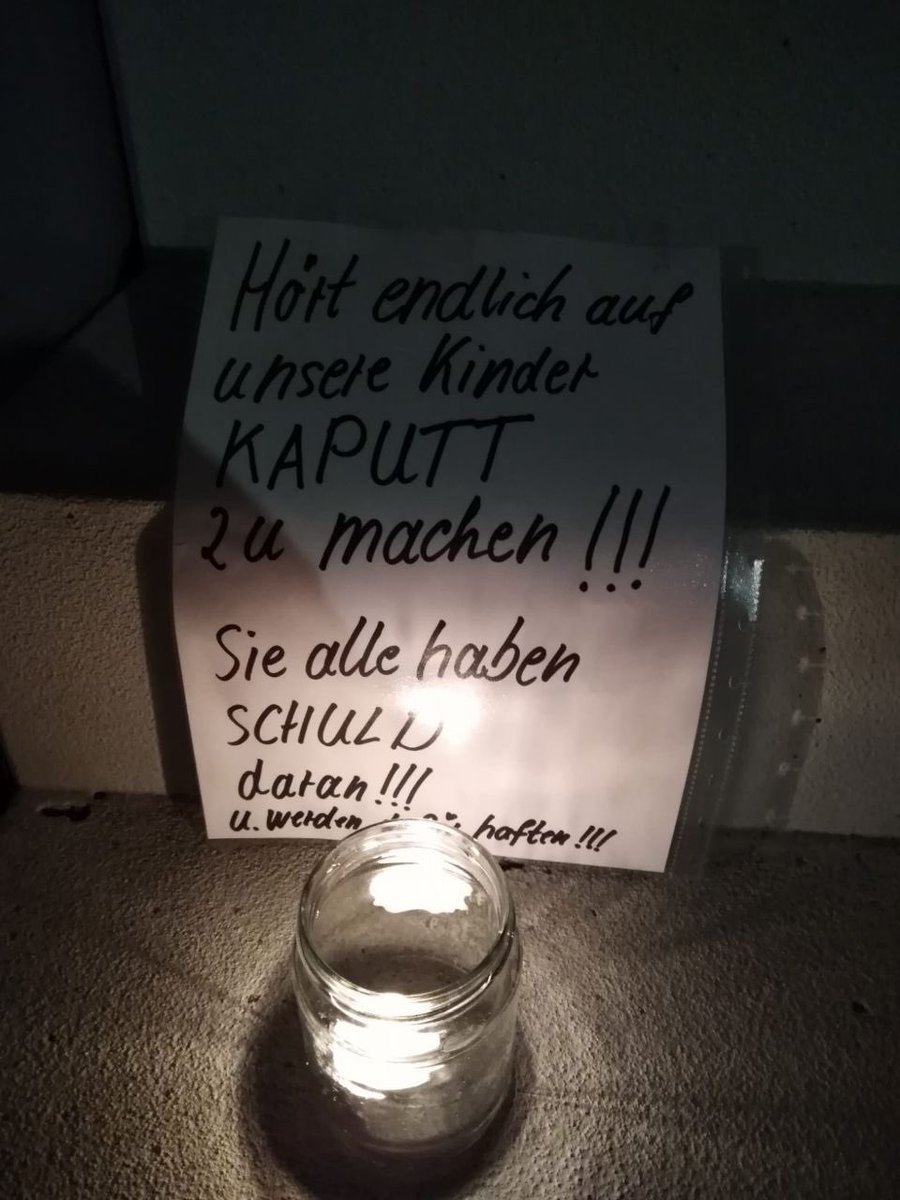 Hört endlich auf
unsere Kinder
KAPUTT
zu machen !!!
Sie alle haben
SCHULD
daran!!!
u. werden haften!!!